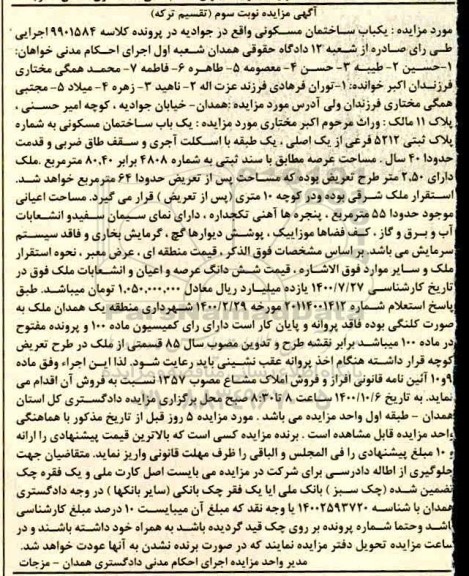 آگهی مزایده نوبت سوم (تقسیم ترکه)
مورد مزایده : یکباب ساختمان مسکونی واقع در جوادیه در پرونده کلاسه ۹۹۰۱۵۸۴ اجرایی
طی رای صادره از شعبه ۱۲ دادگاه حقوقی همدان شعبه اول اجرای احکام مدنی خواهان:
۱-حسین ۲- طیبه ۳- حسن ۴- معصومه ۵- طاهره ۶- فاطمه ۷- محمد همگی مختاری
فرزندان اکبر خوانده: ۱-توران فرهادی فرزند عزت اله ۲- ناهید ۳- زهره ۴- میلاد ۵- مجتبی
همگی مختاری فرزندان ولی آدرس مورد مزایده :همدان- خیابان جوادیه ، کوچه امیر حسنی ،
پلاک ۱۱ مالک : وراث مرحوم اکبر مختاری مورد مزایده : یک باب ساختمان مسکونی به شماره
پلاک ثبتی ۵۲۱۲ فرعی از یک اصلی ، یک طبقه با اسکلت آجری و سقف طاق ضربی و قدمت
حدودا ۴۰ سال . مساحت عرصه مطابق با سند ثبتی به شماره ۴۸۰۸ برابر ۸۰.۴۰ مترمربع .ملک
دارای ۲.۵۰ متر طرح تعریض بوده که مساحت پس از تعریض حدودا ۶۴ مترمربع خواهد شد.
استقرار ملک شرقی بوده ودر کوچه ۱۰ متری (پس از تعریض ) قرار می گیرد. مساحت اعیانی
موجود حدودا ۵۵ مترمربع ، پنجره ها آهنی تکجداره ، دارای نمای سیمان سفیدو انشعابات
آب و برق و گاز ، کف فضاها موزاییک ، پوشش دیوارها گچ ، گرمایش بخاری و فاقد سیستم
سرمایش می باشد. بر اساس مشخصات فوق الذکر ، قیمت منطقه ای ، عرض معبر ، نحوه استقرار
ملک و سایر موارد فوق الاشاره ، قیمت شش دانگ عرصه و اعیان و انشعابات ملک فوق در
تاریخ کارشناسی ۱۴۰۰/۷/۲۷ یازده میلیارد ریال معادل ۱.۰۵۰.۰۰۰.۰۰۰ تومان میباشد. طبق
پاسخ استعلام شماره ۲۰۱۱۴۰۰۱۴۱۲ مورخه ۱۴۰۰/۲/۲۹ شهرداری منطقه یک همدان ملک به
صورت کلنگی بوده فاقد پروانه و پایان کار است دارای رای کمیسیون ماده ۱۰۰ و پرونده مفتوح
در ماده ۱۰۰ میباشد برابر نقشه طرح و تدوین مصوب سال ۸۵ قسمتی از ملک در طرح تعریض
کوچه قرار داشته هنگام اخذ پروانه عقب نشینی باید رعایت شود. لذا این اجراء وفق ماده
۹و۱۰ آئین نامه قانونی افراز و فروش املاک مشاع مصوب ۱۳۵۷ نسبت به فروش آن اقدام می
نماید. به تاریخ ۱۴۰۰/۱۰/۶ ساعت ۸ تا۸:۳۰ صبح محل برگزاری مزایده دادگستری کل استان
همدان - طبقه اول واحد مزایده می باشد . مورد مزایده ۵ روز قبل از تاریخ مذکور با هماهنگی
واحد مزایده قابل مشاهده است . برنده مزایده کسی است که بالاترین قیمت پیشنهادی را ارائه
و ۱۰ مبلغ پیشنهادی را فی المجلس و الباقی را ظرف مهلت قانونی واریز نماید. متقاضیان جهت
جلوگیری از اطاله دادرسی برای شرکت در مزایده می بایست اصل کارت ملی و یک فقره چک
تضمین شده (چک سبز ) بانک ملی (یا یک فقر چک بانکی (سایر بانکها ) در وجه دادگستری
همدان با شناسه ۱۴۰۰۲۵۹۳۷۲۰ یا وجه نقد که مبلغ آن میبایست ۱۰ درصد مبلغ کارشناسی
باشد وحتما شماره پرونده بر روی چک قید گردیده باشد به همراه خود داشته باشند و در
ساعت مزایده تحویل دفتر مزایده نمایند که در صورت برنده نشدن به آنها عودت خواهد شد.
مدیر واحد مزایده اجرای احکام مدنی دادگستری همدان - مزجات